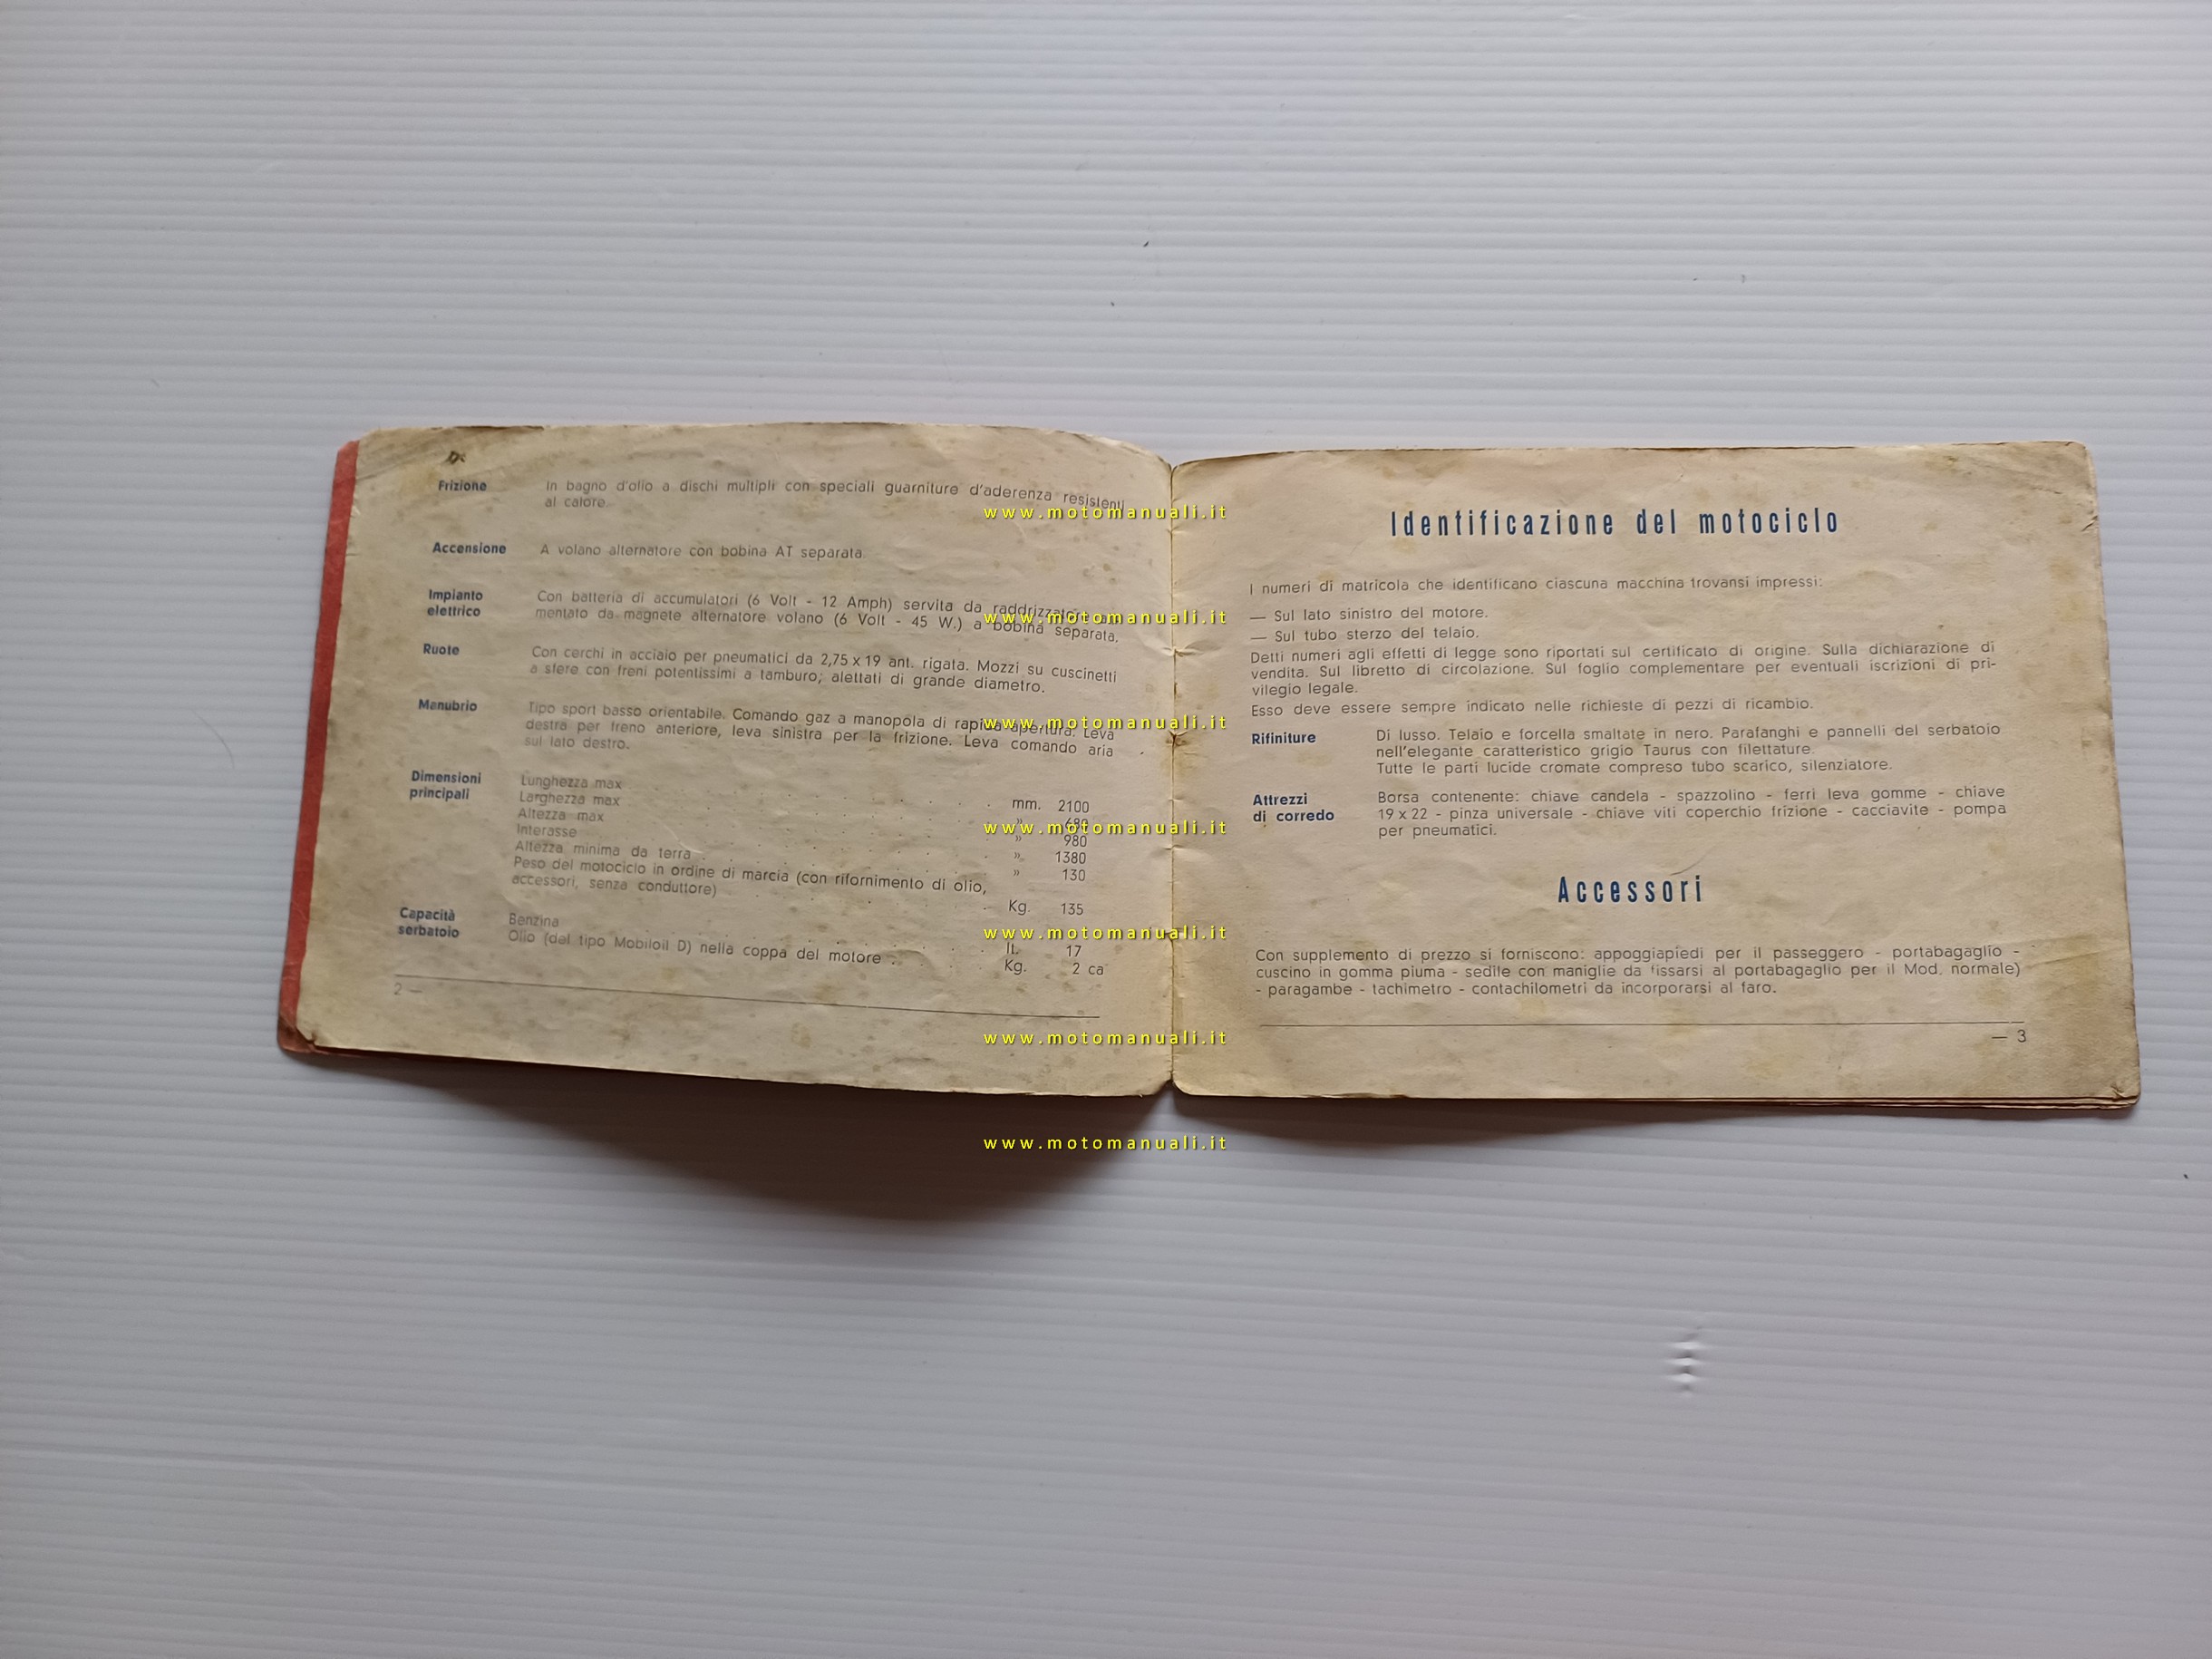 Frizione
In bagno d'olio a dischi multipli con speciali guarniture d'aderenza resistenti
al calore.
Accensione
A volano alternatore con bobina AT separata.
Impianto
elettrico
Con batteria di accumulatori (6 Volt - 12 Amph) servita da
mentato da magnete alternatore volano (6 Volt - 45 W.) a bobina separata.
Ruote
Con cerchi in acciaio per pneumatici da 2,75 x 19 ant. rigata. Mozzi su cuscinetti
a sfere con freni potentissimi a tamburo; alettati di grande diametro.
Manubrio
Tipo sport basso orientabile. Comando gaz a manopola di rapida apertura. Leva
destra per freno anteriore, leva sinistra per la frizione. Leva comando aria
sul lato destro.
Dimensioni
principali
Lunghezza max . . . . mm. 2100
Larghezza max . . . . » 680
Altezza max . . . . » 980
Interasse . . . . » 1380
Altezza minima da terra . . . . » 130
Peso del motociclo in ordine di marcia (con rifornimento di olio,
accessori, senza conduttore) . . . . Kg. 135
Capacità
serbatoio
Benzina . . . . lt. 17
Olio (del tipo Mobiloil D) nella coppa del motore . . Kg. 2 ca
2 —
Identificazione del motociclo
I numeri di matricola che identificano ciascuna macchina trovansi impressi:
— Sul lato sinistro del motore.
— Sul tubo sterzo del telaio.
Detti numeri agli effetti di legge sono riportati sul certificato di origine. Sulla dichiarazione di
vendita. Sul libretto di circolazione. Sul foglio complementare per eventuali iscrizioni di pri-
vilegio legale.
Esso deve essere sempre indicato nelle richieste di pezzi di ricambio.
Rifiniture
Di lusso. Telaio e forcella smaltate in nero. Parafanghi e pannelli del serbatoio
nell'elegante caratteristico grigio Taurus con filettature.
Tutte le parti lucide cromate compreso tubo scarico, silenziatore.
Attrezzi
di corredo
Borsa contenente: chiave candela - spazzolino - ferri leva gomme - chiave
19 x 22 - pinza universale - chiave viti coperchio frizione - cacciavite - pompa
per pneumatici.
Accessori
Con supplemento di prezzo si forniscono: appoggiapiedi per il passeggero - portabagaglio -
cuscino in gomma piuma - sedile con maniglie da fissarsi al portabagaglio per il Mod. normale)
- paragambe - tachimetro - contachilometri da incorporarsi al faro.
— 3
www.motomanuali.it
www.motomanuali.it
www.motomanuali.it
www.motomanuali.it
www.motomanuali.it
www.motomanuali.it
www.motomanuali.it